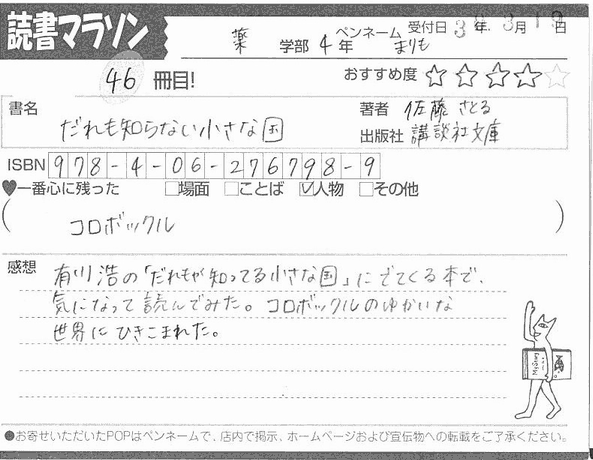 読書マラソン
薬 学部 4年 ペンネーム まりも 受付日 3年 3月 19日
46 冊目! おすすめ度 ★★★★☆
書名 だれも知らない小さな国
著者 佐藤さとる
出版社 講談社文庫
ISBN 978-4-06-276798-9
♥一番心に残った □場面 □ことば ☑人物 □その他
(コロボックル)
感想 有川浩の「だれもが知ってる小さな国」にでてくる本で、
気になって読んでみた。コロボックルのゆかいな
世界にひきこまれた。
●お寄せいただいたPOPはペンネームで、店内で掲示、ホームページおよび宣伝物への転載をご了承ください。